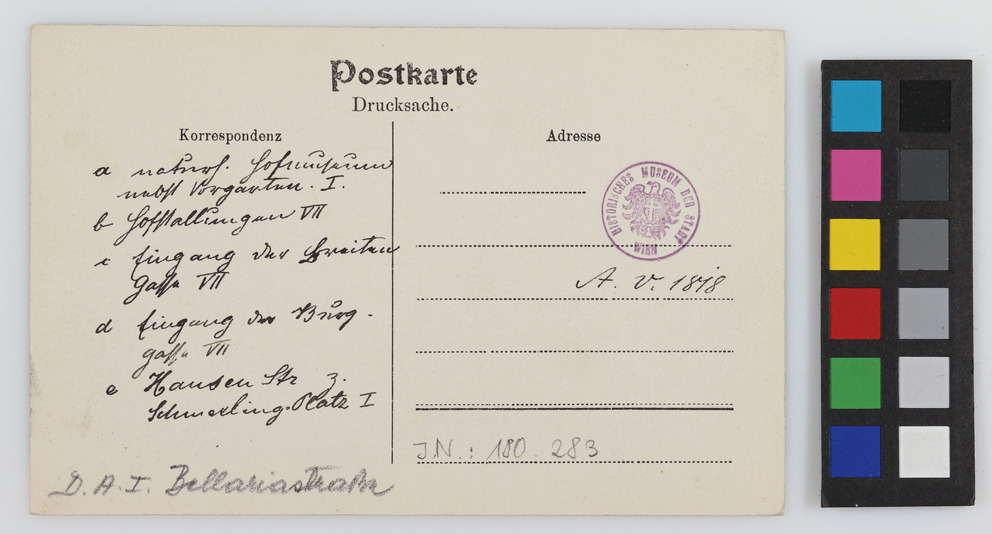 Postkarte
Drucksache.
Korrespondenz
Adresse
a naturh. Hofmuseum
nebst Vorgarten. I.
b Hofstallungen VII
c Eingang der Breiten
Gasse VII
d Eingang der Burg-
gasse VII
e Hansen Str z.
Schmerling-Platz I
D. A. I. Bellariastraße
HISTORISCHES MUSEUM DER STADT
WIEN
A. V. 1898
J.N.: 180.283